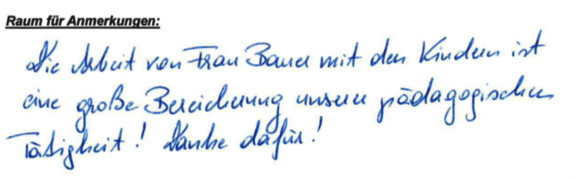 Raum für Anmerkungen:
Die Arbeit von Frau Bauer mit den Kindern ist
eine große Bereicherung unserer pädagogischen
Tätigkeit! Danke dafür!